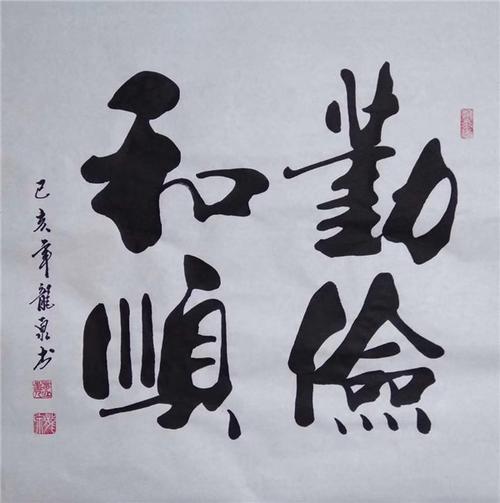 勤儉
和順
己亥年龍泉书